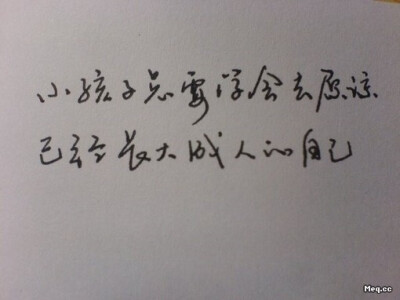 小孩子总要学会去原谅
已经长大成人的自己
Meq.cc